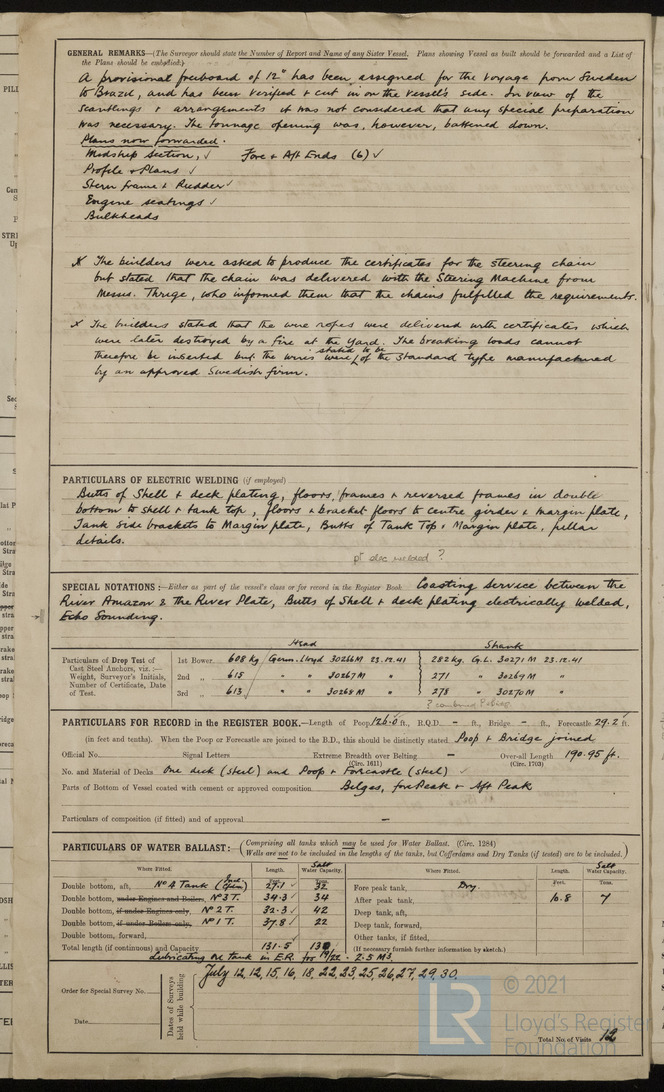 GENERAL REMARKS—(The Surveyor should state the Number of Report and Name of any Sister Vessel. Plans showing Vessel as built should be forwarded and a List of
the Plans should be embodied.)
A provisional freeboard of 12" has been assigned for the voyage from Sweden
to Brazil, and has been verified & cut in on the vessel's side. In view of the
scantlings & arrangements it was not considered that any special preparation
was necessary. The tonnage opening was, however, battened down.
Plans now forwarded.
Midship Section, ✓ Fore & Aft Ends (6) ✓
Profile & Plans ✓
Stern frame & Rudder ✓
Engine seatings ✓
Bulkheads
X The builders were asked to produce the certificates for the steering chain
but stated that the chain was delivered with the Steering Machine from
Messrs. Thrige, who informed them that the chains fulfilled the requirements.
X The builders stated that the wire ropes were delivered with certificates which
were later destroyed by a fire at the Yard. The breaking loads cannot
therefore be inserted but the wires were stated to be of the standard type manufactured
by an approved Swedish firm.
PARTICULARS OF ELECTRIC WELDING (if employed)
Butts of Shell & deck plating, floors, frames & reversed frames in double
bottom to shell & tank top, floors & bracket floors to centre girder & margin plate,
Tank side brackets to Margin plate, Butts of Tank Top & Margin plate, pillar
details.
pt elec welded ?
SPECIAL NOTATIONS:—Either as part of the vessel's class or for record in the Register Book. Coasting Service between the
River Amazon & The River Plate, Butts of Shell & deck plating electrically welded,
Echo Sounding.
Head Shank
Particulars of Drop Test of
Cast Steel Anchors, viz.:—
Weight, Surveyor's Initials,
Number of Certificate, Date
of Test.
1st Bower 608 kg Germ. Lloyd 30266M 23.12.41 282 kg. G.L. 30271M 23.12.41
2nd „ 615 " " 30267M " 271 " 30269M "
3rd „ 613 " " 30268M " 278 " 30270M "
PARTICULARS FOR RECORD in the REGISTER BOOK.—Length of Poop 126.0 ft., R.Q.D. – ft., Bridge – ft., Forecastle 29.2 ft.
(in feet and tenths). When the Poop or Forecastle are joined to the B.D., this should be distinctly stated. Poop & Bridge joined
Official No. Signal Letters Extreme Breadth over Belting – Over-all Length 190.95 ft.
(Circ. 1611) (Circ. 1703)
No. and Material of Decks One deck (steel) and Poop & Forecastle (steel)
Parts of Bottom of Vessel coated with cement or approved composition Bilges, fore Peak & Aft Peak
Particulars of composition (if fitted) and of approval –
PARTICULARS OF WATER BALLAST:—(Comprising all tanks which may be used for Water Ballast. (Circ. 1284)
Wells are not to be included in the lengths of the tanks, but Cofferdams and Dry Tanks (if tested) are to be included.)
Where Fitted. Length. Salt Water Capacity. Where Fitted. Length. Salt Water Capacity.
Feet. Tons. Feet. Tons.
Double bottom, aft, No 4 Tank 27.1 ✓ 32 Fore peak tank, Dry.
Double bottom, under Engines and Boilers, No 3 T. 34.3 ✓ 34 After peak tank, 10.8 7
Double bottom, if under Engines only, No 2 T. 32.3 ✓ 42 Deep tank, aft,
Double bottom, if under Boilers only, No 1 T. 37.8 ✓ 22 Deep tank, forward,
Double bottom, forward, Other tanks, if fitted,
Total length (if continuous) and Capacity 131.5 130 (If necessary furnish further information by sketch.)
Lubricating oil tank in E.R. for 19/22 - 2.5 M3.
Order for Special Survey No.
Date
Dates of Surveys held while building
July 12, 12, 15, 16, 18, 22, 23, 25, 26, 27, 29, 30.
Total No. of Visits 12
© 2021
Lloyd's Register
Foundation
LR